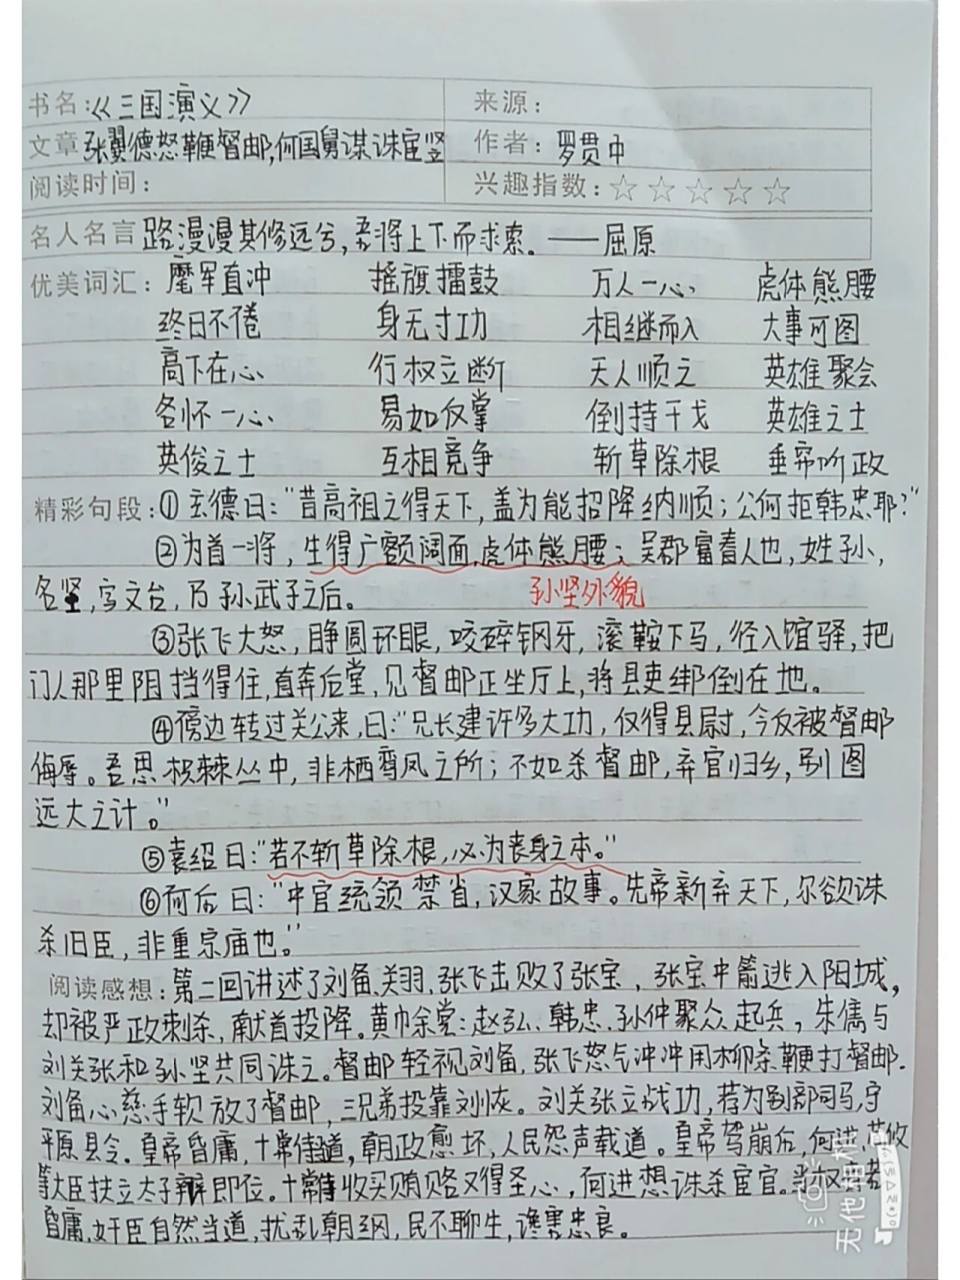 书名:《三国演义》 来源:
文章 张翼德怒鞭督邮,何国舅谋诛宦竖 作者: 罗贯中
阅读时间: 兴趣指数:☆☆☆☆☆
名人名言 路漫漫其修远兮,吾将上下而求索。——屈原
优美词汇: 麾军直冲 摇旗擂鼓 万人一心、 虎体熊腰
终日不倦 身无寸功 相继而入 大事可图
高下在心 行权立断 天人顺之 英雄聚会
各怀一心、 易如反掌 倒持干戈 英雄之士
英俊之士 互相竞争 斩草除根 垂帘听政
精彩句段:①玄德曰:“昔高祖之得天下,盖为能招降纳顺;公何拒韩忠耶?”
②为首一将,生得广额阔面,虎体熊腰;吴郡富春人也,姓孙,
名坚,字文台,乃孙武子之后。 孙坚外貌
③张飞大怒,睁圆环眼,咬碎钢牙,滚鞍下马,径入馆驿,把
门人那里阻挡得住,直奔后堂,见督邮正坐厅上,将县吏绑倒在地。
④傍边转过关公来,曰:“兄长建许多大功,仅得县尉,今反被督邮
侮辱。吾思枳棘丛中,非栖鸾凤之所;不如杀督邮,弃官归乡,别图
远大之计。”
⑤袁绍曰:“若不斩草除根,必为丧身之本。”
⑥何后曰:“中官统领禁省,汉家故事。先帝新弃天下,尔欲诛
杀旧臣,非重宗庙也。”
阅读感想:第二回讲述了刘备、关羽、张飞击败了张宝,张宝中箭逃入阳城,
却被严政刺杀,献首投降。黄巾余党:赵弘、韩忠、孙仲聚众起兵,朱儁与
刘关张和孙坚共同诛之。督邮轻视刘备,张飞怒气冲冲用柳条鞭打督邮.
刘备心慈手软放了督邮,三兄弟投靠刘恢。刘关张立战功,荐为别部司马,守
平原县令。皇帝昏庸,十常侍当道,朝政愈坏,人民怨声载道。皇帝驾崩后,何进、荀攸
等大臣扶立太子辩即位。十常侍收买贿赂又得圣心,何进想诛杀宦官。
昏庸,奸臣自然当道,扰乱朝纲,民不聊生,谗害忠良。
无他相机